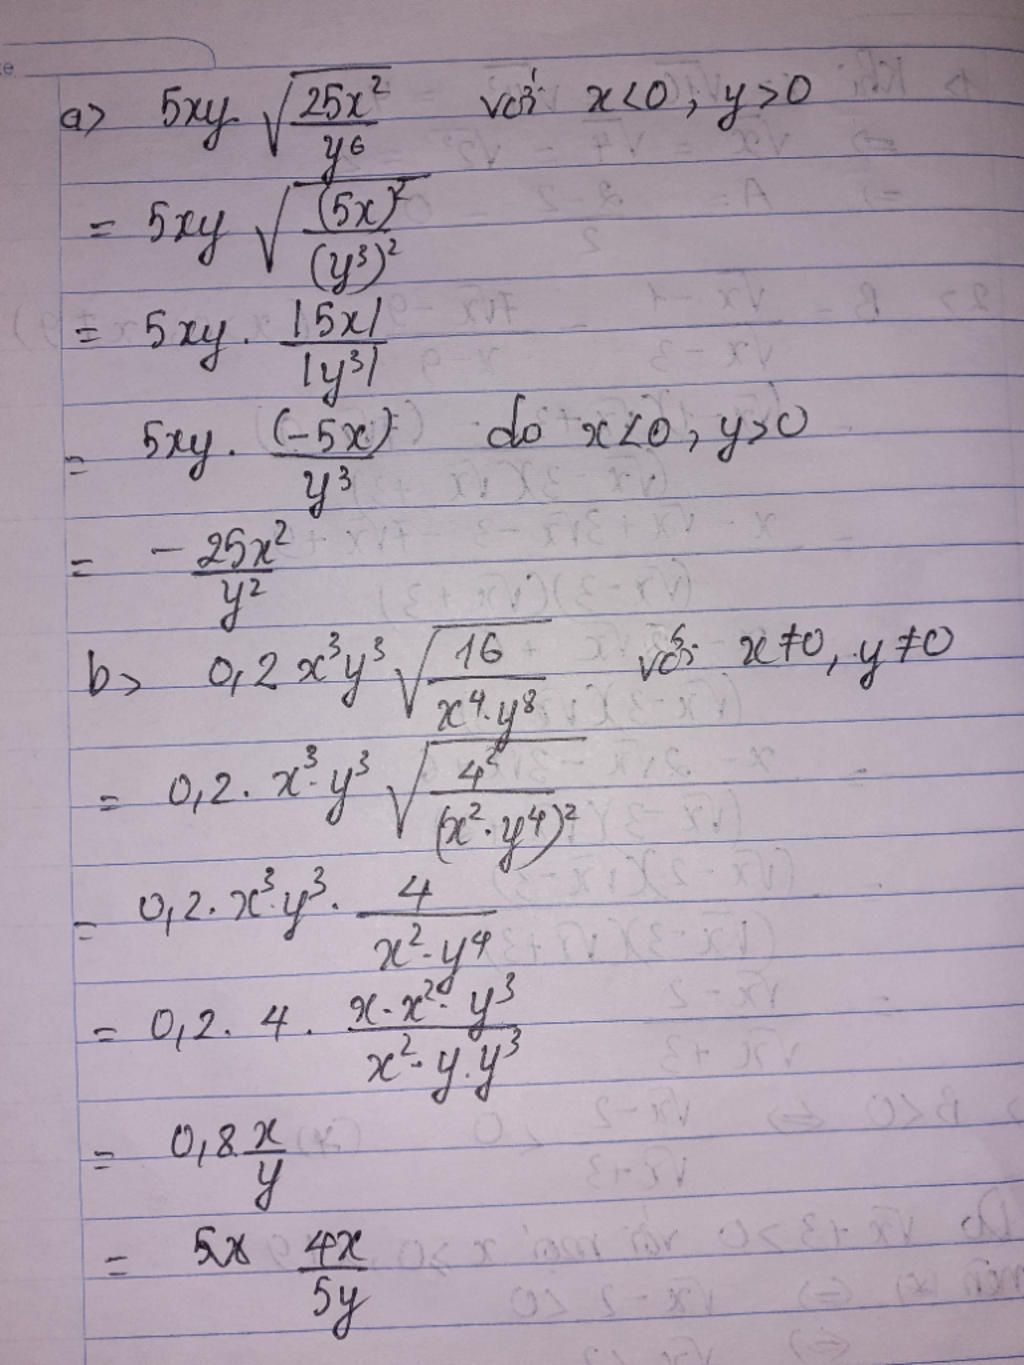 a> 5xy. √(25x²/y⁶) với x<0, y>0
= 5xy √((5x)²/(y³)²)
= 5xy . |5x|/|y³|
= 5xy . (-5x)/y³ do x<0, y>0
= - 25x²/y²
b> 0,2 x³y³ √(16/(x⁴.y⁸)) với x≠0, y≠0
= 0,2. x³.y³ √(4²/(x².y⁴)²)
= 0,2. x³.y³. 4/(x².y⁴)
= 0,2. 4. (x.x².y³)/(x².y.y³)
= 0,8 x/y
= 4x/5y